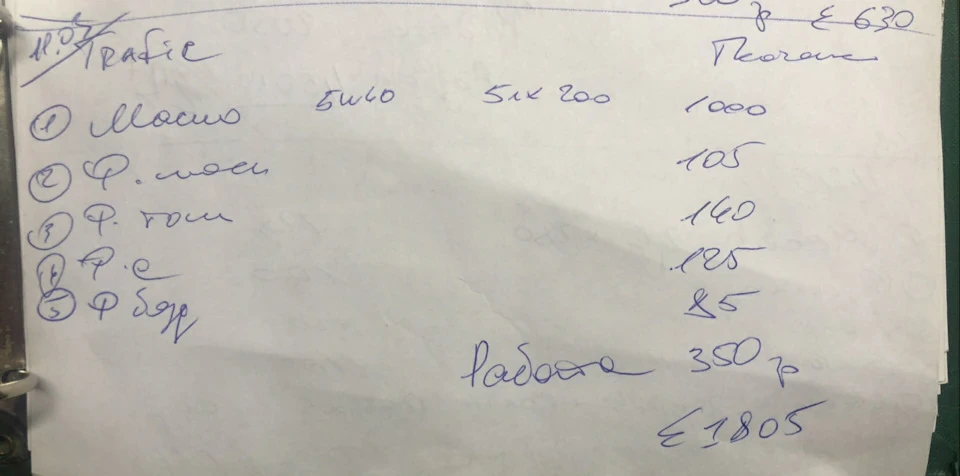 Σ 630
Trafic
① Масло 5W40 5л х 200 1000
② Ф. масл 105
③ Ф. топ 140
④ Ф. с 125
⑤ Ф 85
Работа 350 гр
Σ 1805